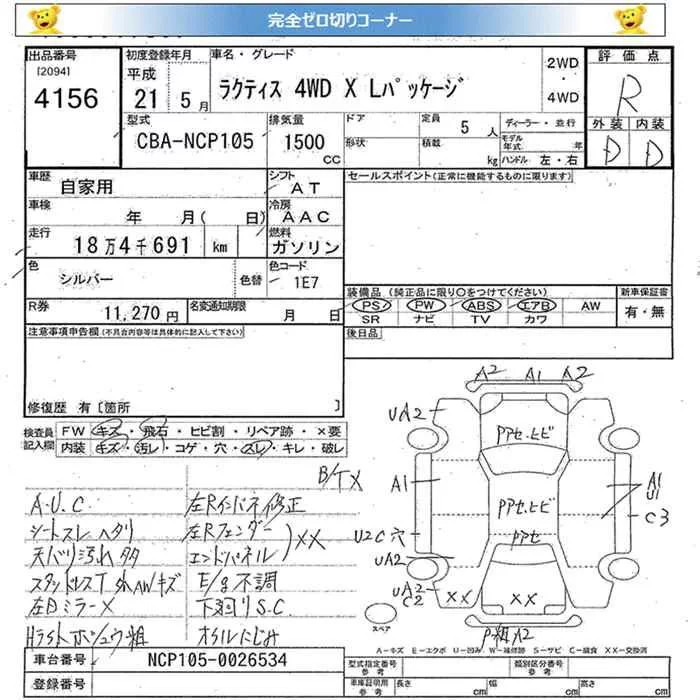 完全ゼロ切りコーナー
出品番号
[2094]
4156
初度登録年月
平成
21 5月
車名・グレード
ラクティス 4WD X Lパッケージ
2WD
・
4WD
評価点
R
外装 内装
D D
型式
CBA-NCP105
排気量
1500
CC
ドア
定員
5 人
形状
積載
kg
ディーラー・並行
モデル年式 年
ハンドル 左・右
車歴
自家用
シフト
AT
車検
年 月( 日)
冷房
AAC
走行
18万4千691 km
燃料
ガソリン
色
シルバー
色替
色コード
1E7
R券
11,270円
名変通知期限
月 日
セールスポイント(正常に機能するものに限ります)
装備品(純正品に限り○をつけてください)
PS PW ABS エアB AW
SR ナビ TV カワ
新車保証書
有・無
後日品
注意事項申告欄(不具合内容等は具体的に記入して下さい)
修復歴 有〔箇所 〕
検査員記入欄
FW キズ・飛石・ヒビ割・リペア跡・×要
内装 キズ・汚レ・コゲ・穴・スレ・キレ・破レ
B/TX
A.U.C
シートスレ ヘタリ
天バリ汚れタタ
スタッドレスT 外AWキズ
左Dミラー×
左Rインパネ修正
左Rフェンダー
エンドパネル
)××
E/g不調
下廻りS.C
オイルにじみ
A2 A1 A2
UA2
PPセ.ヒビ
A1
PPセ.ヒビ
A1
U1
C3
U2C穴
PPセ
UA2
UA2
C2
××
××
スペア
A-キズ E-エクボ U-凹み W-補修跡 S-サビ C-腐食 XX-交換済
車台番号
NCP105-0026534
登録番号
型式指定番号
参考
類別区分番号
参考
車庫証明用
参考
長さ cm
幅 cm
高さ cm